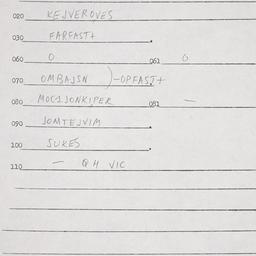 020 KEJVEROVES
030 FARFAST+
060 0 061 0
070 OMBAJSN )-OPFAST+
080 MOC1JONKIPER 081 -
090 JOMTEJVIM
100 JUKES
110 - Q H VIC